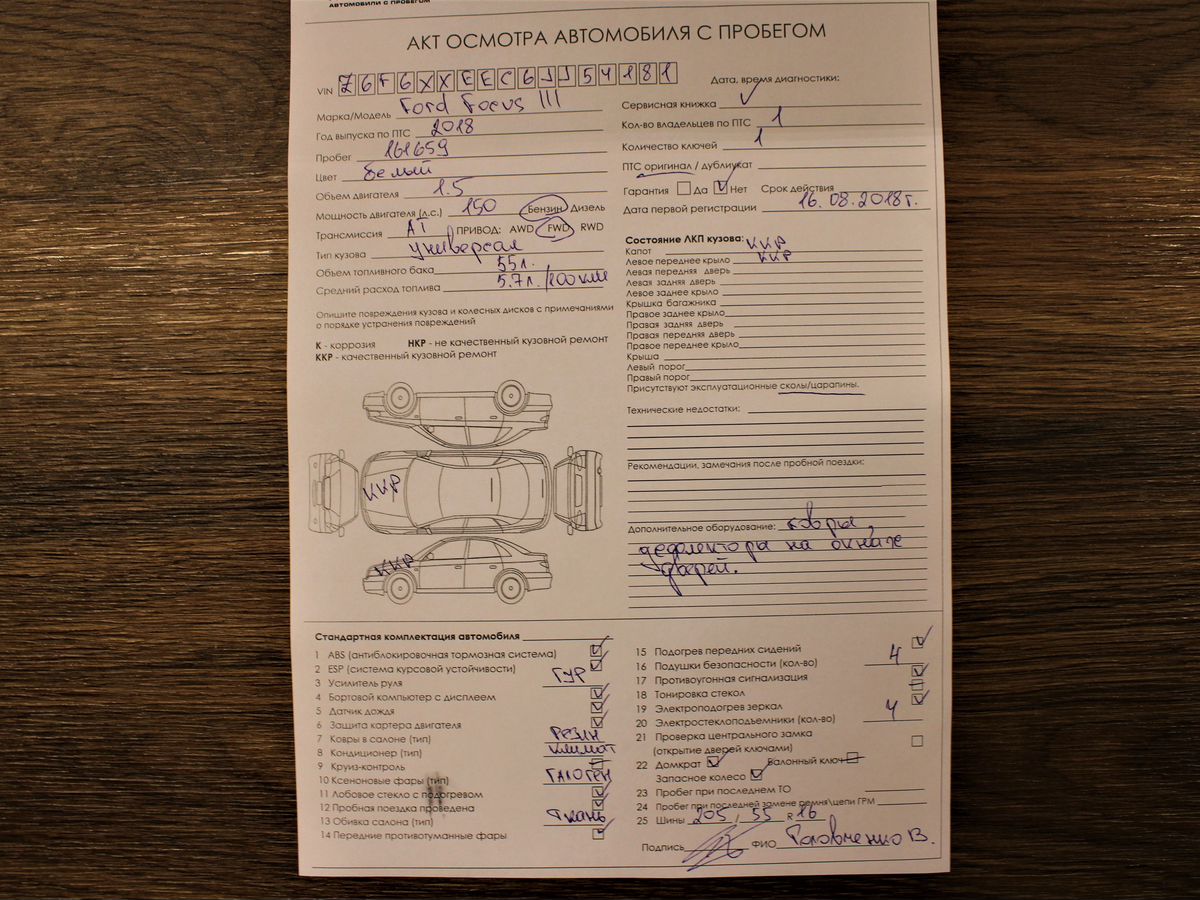 АВТОМОБИЛИ С ПРОБЕГОМ
АКТ ОСМОТРА АВТОМОБИЛЯ С ПРОБЕГОМ
VIN Z6F6XXEEC6JJ54181
Марка/Модель Ford Focus III
Год выпуска по ПТС 2018
Пробег 161659
Цвет белый
Объем двигателя 1.5
Мощность двигателя (л.с.) 150 Бензин Дизель
Трансмиссия АТ ПРИВОД: AWD FWD RWD
Тип кузова универсал
Объем топливного бака 55л.
Средний расход топлива 5.7л./100км
Опишите повреждения кузова и колесных дисков с примечаниями
о порядке устранения повреждений
К - коррозия НКР - не качественный кузовной ремонт
ККР - качественный кузовной ремонт
ККР
ККР
Дата, время диагностики:
Сервисная книжка
Кол-во владельцев по ПТС 1
Количество ключей 1
ПТС оригинал / дубликат
Гарантия Да Нет Срок действия
Дата первой регистрации 16.08.2018г.
Состояние ЛКП кузова:
Капот ККР
Левое переднее крыло ККР
Левая передняя дверь
Левая задняя дверь
Левое заднее крыло
Крышка багажника
Правое заднее крыло
Правая задняя дверь
Правая передняя дверь
Правое переднее крыло
Крыша
Левый порог
Правый порог
Присутствуют эксплуатационные сколы/царапины.
Технические недостатки:
Рекомендации, замечания после пробной поездки:
Дополнительное оборудование: ковры,
дефлектора на окнах
дверей.
Стандартная комплектация автомобиля
1 ABS (антиблокировочная тормозная система)
2 ESP (система курсовой устойчивости)
3 Усилитель руля ГУР
4 Бортовой компьютер с дисплеем
5 Датчик дождя
6 Защита картера двигателя
7 Ковры в салоне (тип) Резин
8 Кондиционер (тип) Климат
9 Круиз-контроль
10 Ксеноновые фары (тип) Галоген
11 Лобовое стекло с подогревом
12 Пробная поездка проведена
13 Обивка салона (тип) Ткань
14 Передние противотуманные фары
15 Подогрев передних сидений
16 Подушки безопасности (кол-во) 4
17 Противоугонная сигнализация
18 Тонировка стекол
19 Электроподогрев зеркал
20 Электростеклоподъемники (кол-во) 4
21 Проверка центрального замка
(открытие дверей ключами)
22 Домкрат Балонный ключ
Запасное колесо
23 Пробег при последнем ТО
24 Пробег при последней замене ремня\цепи ГРМ
25 Шины 205 / 55 R 16
Подпись ФИО Головченко В.